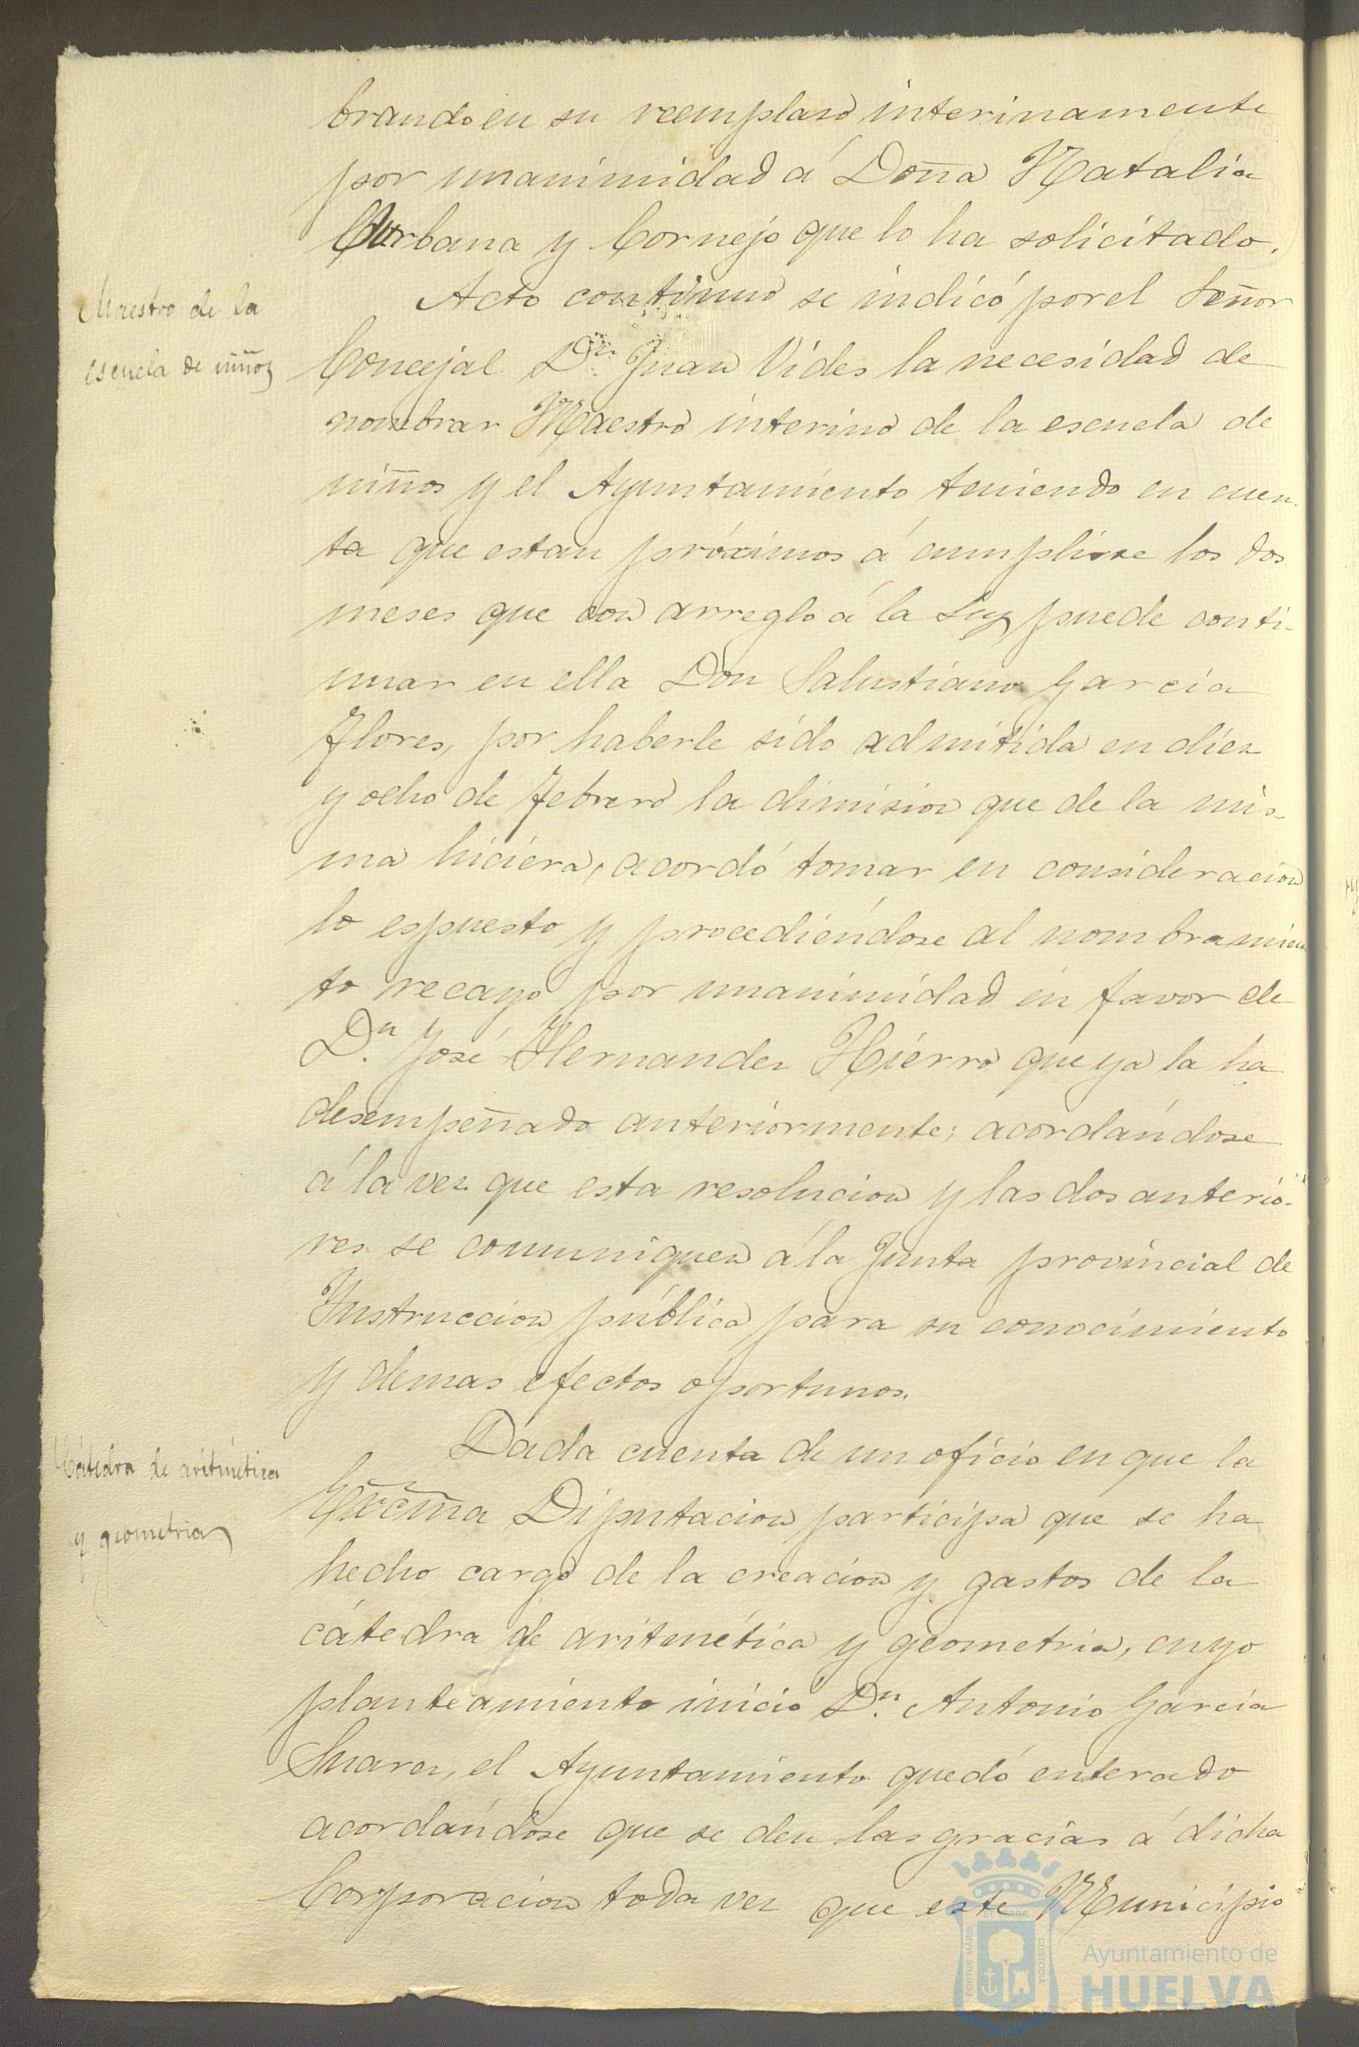 brando en su reemplaso interinamente
por unanimidad á Doña Natalia
Curbana y Cornejo que lo ha solicitado.
Maestro de la
escuela de niños
Acto continuo se indicó por el Señor
Concejal Dn Juan Vides la necesidad de
nombrar Maestro interino de la escuela de
niños y el Ayuntamiento teniendo en cuen-
ta que estan próximos á cumplirse los dos
meses que con arreglo á la Ley puede conti-
nuar en ella Don Salustiano Garcia
Flores, por haberle sido admitida en diez
y ocho de Febrero la dimision que de la mis-
ma hiciera, acordó tomar en consideracion
lo espuesto y procediéndose al nombramien
to recayó por unanimidad en favor de
Dn. José Hernandez Hierro que ya la ha
desempeñado anteriormente; acordándose
á la vez que esta resolucion y las dos anterio-
res se comuniquen á la Junta provincial de
Instruccion pública para su conocimiento
y demas efectos oportunos.
Cátedra de aritmética
y geometria
Dada cuenta de un oficio en que la
Excma Diputacion participa que se ha
hecho cargo de la creacion y gastos de la
cátedra de aritmética y geometria, cuyo
planteamiento inició Dn. Antonio Garcia
Suarez, el Ayuntamiento quedó enterado
acordándose que se den las gracias á dicha
Corporacion toda vez que este Municipio
PORTUS MARIS
CUSTODIA
Ayuntamiento de
HUELVA